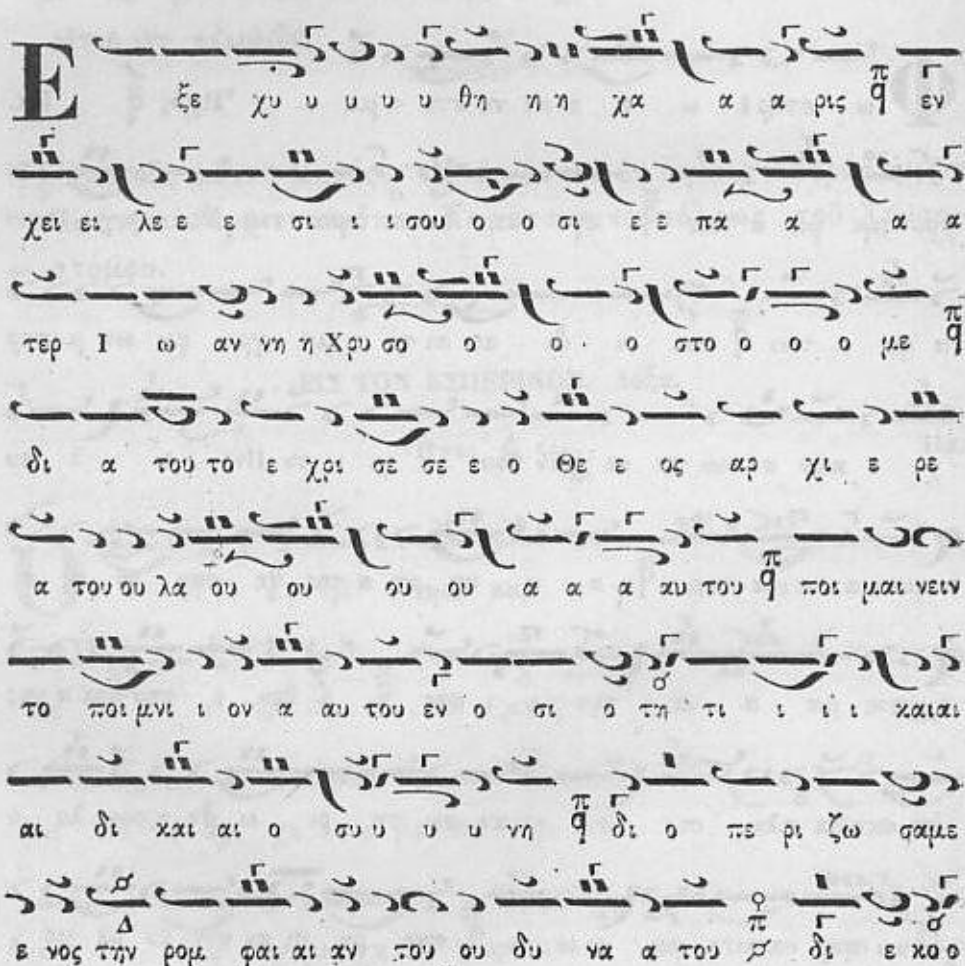 Ε ξε χυ υ υ υ υ θη η η χα α α ρις π q εν
χει ει λε ε ε σι ι ι σου ο ο σι ε ε πα α α α α
τερ Ι ω αν νη η Χρυ σο ο ο ο ο στο ο ο ο με π q
δι α του το ε χρι σε σε ε ο Θε ε ος αρ χι ε ρε
α του ου λα ου ου ου ου α α α αυ του π q ποι μαι νειν
το ποι μνι ι ον α αυ του εν ο σι ο τη τι ι ι ι και αι
αι δι και αι ο συ υ υ υ νη π q δι ο πε ρι ζω σα με
ε νος την Δ ρομ φαι αι αν του ου δυ να α του π δι ε κο ο